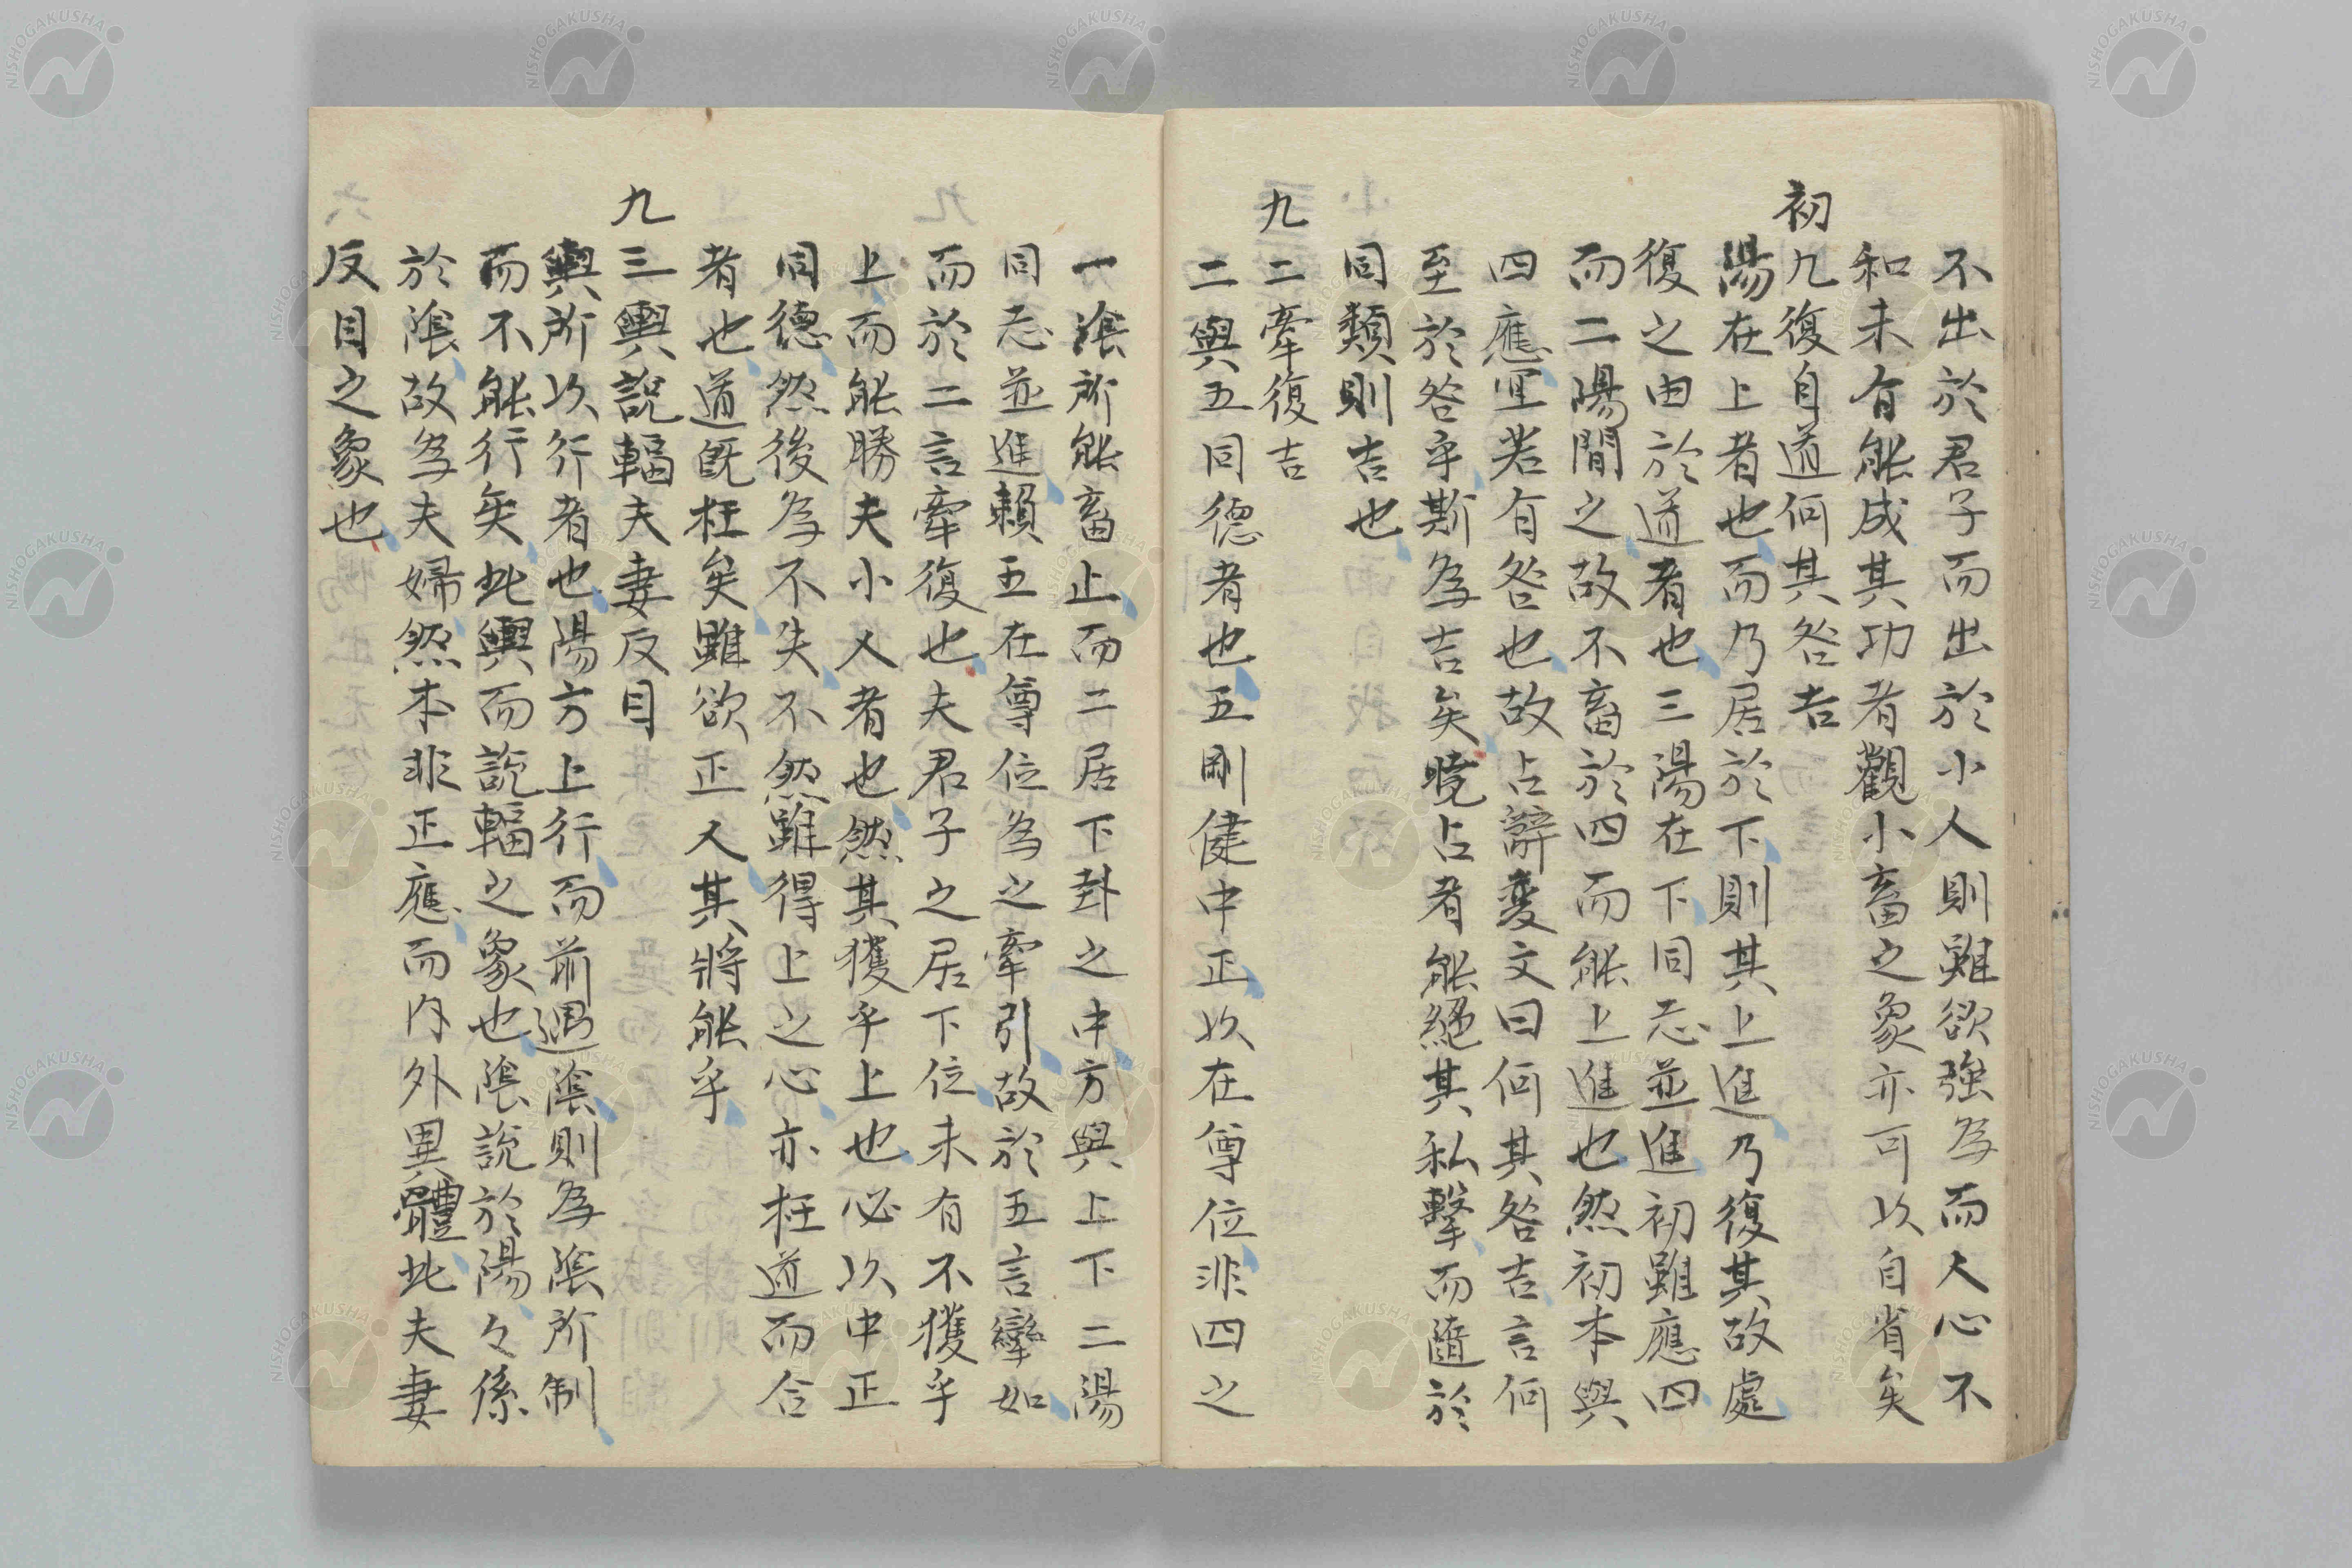 不出於君子而出於小人則雖欲強為而人心不
和未有能成其功者觀小畜之象亦可以自省矣
初九復自道何其咎吉
陽在上者也而乃居於下則其上進乃復其故處
復之由於道者也三陽在下同志並進初雖應四
而二陽間之故不畜於四而能上進也然初本與
四應宜若有咎也故占辭変文曰何其咎吉言何
至於咎乎斯為吉矣曉占者能絕其私繫而隨於
同類則吉也
九二牽復吉
二與五同德者也五剛健中正以在尊位非四之
一陰所能畜止而二居下卦之中方與上下二陽
同志並進賴五在尊位為之牽引故於五言攣如
而於二言牽復也夫君子之居下位未有不獲乎
上而能勝夫小人者也然其獲乎上也必以中正
同德然後為不失不然雖得上之心亦枉道而合
者也道既枉矣雖欲正人其將能乎
九三輿說輻夫妻反目
輿所以行者也陽方上行而前遇陰則為陰所制
而不能行矣此輿而說輻之象也陰說於陽々係
於陰故為夫婦然本非正應而內外異體此夫妻
反目之象也
NISHOGAKUSHA